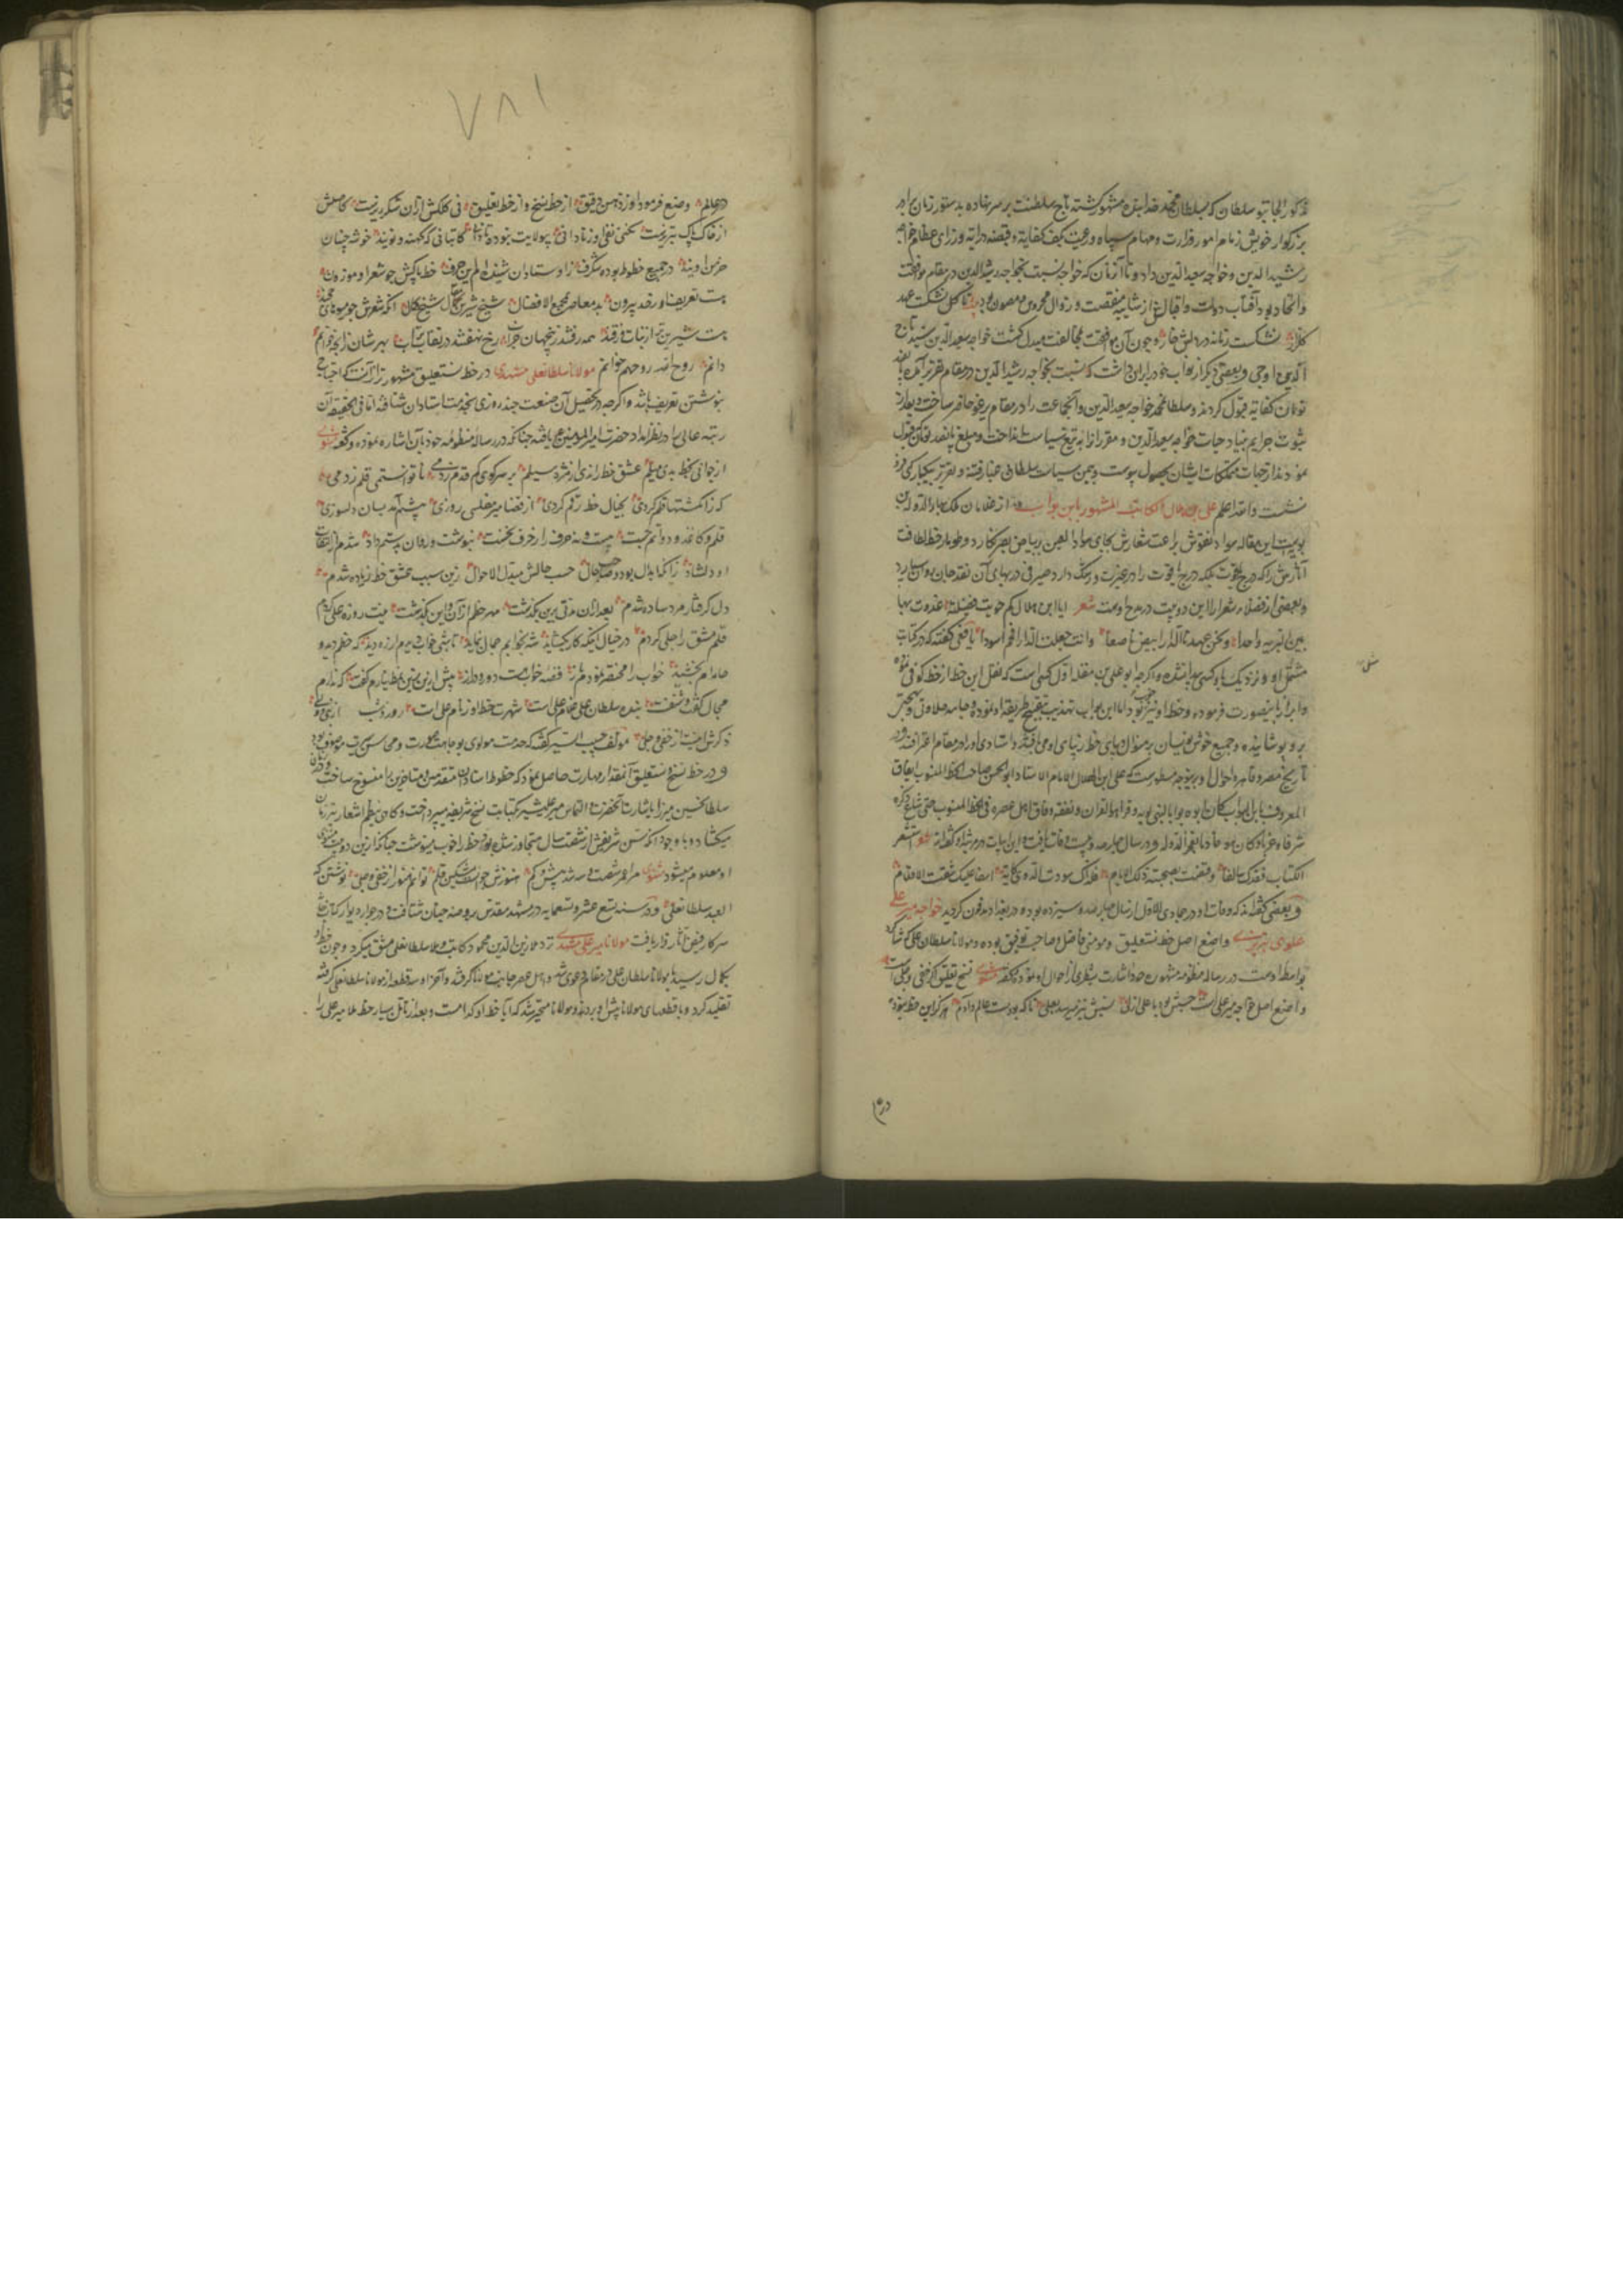 مذکور الجایتو سلطان که بسلطان محمد خدابنده مشهور گشته تاج سلطنت بر سر نهاده بدستور زمان برادر
بزرگوار خویش زمام امور وزارت و مهام سپاه و رعیت بکف کفایة و قبضه درایة وزرای عظام خواجه
رشید الدین و خواجه سعد الدین داد و تا آن زمان که خواجه نسبت بخواجه رشید الدین در مقام موافقت
و اتحاد بود آفتاب دولت و اقبالش از شایبه منقصت و زوال محروس و مصون بود تا کل نشکست عهد
کلزار نشکست زمانه در دلش خار و چون آن موافقت بمخالفت مبدل گشت خواجه سعد الدین سید تاج
الدین اوجی و بعضی دیگر از نواب خود را بران داشت که نسبت بخواجه رشید الدین در مقام تقریر آمده
تومان کفایة قبول کردند و سلطان محمد خواجه سعد الدین و آنجماعت را در مقام یرغو حاضر ساخت و بعد از
ثبوت جرایم بنیاد حیات خواجه سعد الدین و مقرران را به تیغ سیاست بر انداخت و مبلغ پانصد تومان که قبول
نموده بودند از جهات و متملکات ایشان بحصول پیوست و بیمن سیاست سلطانی غبار فتنه و تقریر بیکبارگی فرو
نشست و الله اعلم علی بن هلال الکاتب المشهور بابن بواب از غلامان ملک بهاء الدوله بن
بویه است این مقاله سواد نقوش براعت شعارش بجای سواد العین بر بیاض بصر نگارد و طومار خط لطافت
آثارش را که درج یاقوت بلکه درج یاقوت را در غیرت و رشک دارد صیرفی در بهای آن نقد جان بوسیله آرد
و بعضی از فضلاء شعرا را این دو بیت در مدح اوست شعر
بین البریه واحدا
مثل او و نزدیک باو کسی پیدا نشده و اگرچه ابو علی بن مقله اول کسی است که نقل این خط از خط کوفی نموده
و ابراز باینصورت فرموده و خط او نیز خوب بود اما ابن بواب تهذیب و تنقیح طریقه او نموده و جامه حلاوتی و بهجتی
برو پوشانیده و جمیع خوش نویسان بر منوال و پای خط رنپای او می افتند و استادی او را در مقام اعترافند و در
تاریخ مصر و قاهره احوال او برینوجه مسطور است که علی ابن الهلال الامام الاستاد ابو الحسن صاحب الخط المنسوب الفایق
المعروف بابن البواب
شرقا و غربا و کان
الکتاب فقدک سالفا و قضت بصحة ذلک الایام فلذاک سودت الدوی کآبة اسفا علیک و شقت الاقلام
و بعضی گفته اند که وفات او در جمادی الاول از سال چهار صد و سیزده بوده در بغداد مدفون گردید خواجه میر علی
علوی تبریزی واضع اصل خط نستعلیق و مومنی فاضل و صاحب توفیق بوده و مولانا سلطان علی که شاگرد
بواسطه اوست در رساله منظومه مشهوره خود اشارت بشطری از احوال او نموده و گفته مثنوی نسخ تعلیق اگر خفی و جلی است
واضع اصل خواجه میر علی است نسبش نیز میرسد بعلی تا که بوده است عالم و آدم هرگز این خط نبود
در عالم
مثل
۷۸۱
در عالم وضع فرمود او ز ذهن دقیق از خط نسخ و از خط تعلیق نی کلکش ازان شکر ریزست کاصلش
از خاک پاک تبریزست نکنی نفی او ز نادانی بی ولایت نبود تا دانی کاتبانی که کهنه و نویند خوشه چینان
خرمن اویند در جمیع خطوط بوده شگرف ز اوستادان شنیده ام این حرف خط پاکش چو شعر او موزون
هست تعریف او ز حد بیرون بد معاصر بمجمع الافضال شیخ شیرین مقال شیخ کمال آنکه شعرش چو میوهای خجند
هست شیرین تر از نبات و ز قند همه رفتند زین جهان خراب رخ نهفتند در نقاب تراب بهر شان ز آنچه خوانم
دانم روح الله روحهم خوانم مولانا سلطانعلی مشهدی در خط نستعلیق مشهور تر از آنست که احتیاج
بنوشتن تعریف باشد و اگرچه در تحصیل آن صنعت چند روزی بخدمت استادان شتافته اما فی الحقیقة آن
رتبه عالی را در نظر امداد حضرت امیر المؤمنین یافته چنانکه در رساله منظومه خود بآن اشاره نموده و گفته مثنوی
از جوانی بخط بدی میلم عشق خط راندی از مژه سیلم بر سر کوی کم قدم زدمی تا توانستمی قلم زدمی
که ز انگشتها قلم کردی بخیال خط رقم کردی از قضا میر مفلسی روزی پیشم آمد بسان دلسوزی
قلم و کاغذ و دواتم جست بیست و نه حرف را ز حرف نخست بنوشت و روان بدستم داد شدم از التفات
او دلشاد زانکه ابدال بود و صاحب حال حسب حالش مبدل الاحوال زین سبب عشق خط زیاده شدم
دل گرفتار مرد ساده شدم بعد ازان مدتی برین بگذشت مهر خطم ازان و این بگذشت نیت روزه علی کردم
قلم مشق را جلی کردم در خیال اینکه کار بگشاید شه بخوابم جمال بنماید تا شبی خواب دیدم از ره دید که خطم دید و
جامه ام بخشید خواب را مختصر نمودم باز قصه خوابست دور و دراز بیش ازین زین نمط نیارم گفت که ندارم
مجال گفت و شنفت بنده سلطان علی غلام علی است شهرت خط او ز نام علی است روز و شب
ذکرش است از خفی و جلی مؤلف حبیب السیر گفته که خدمت مولوی بوجاهت صورت و محاسن سیرت موصوف بود
و در خط نسخ و نستعلیق آنقدار مهارت حاصل نمود که خطوط استادان متقدمین و متاخرین را منسوخ ساخت
سلطان حسین میرزا باشارت آنحضرت و التماس میر علیشیر بکتابت نسخ شریفه میپرداخت و گاهی بنظم اشعار نیز زبان
میگشاد و با وجود آنکه سن شریفش از شصت سال متجاوز شده بود خط را خوب مینوشت چنانکه ازین دو بیت
او معلوم میشود مثنوی مرا عمر شصت و سه شد بیش و کم هنوزش جوانست مشکین قلم توانم هنوز از خفی و جلی نوشتن که
العبد سلطانعلی و در سنه تسع عشر و تسعمایه در مشهد مقدس بروضه جنان شتافت و در جوار دیوار
سرکار فیض آثار قرار یافت مولانا میر علی مشهدی نزد ملا زین الدین محمود کاتب و ملا سلطانعلی مشق میکرد و چون خط او
بکمال رسید با مولانا سلطان علی در مقام دعوی شد و اهل عصر جانب مولانا گرفتند و آخر او سه قطعه از مولانا سلطانعلی گرفته
تقلید کرد و با قطعهای مولانا پیش او بردند و مولانا متحیر شد که آیا خط او کدامست و بعد از تامل بسیار خط ملا میر علی را